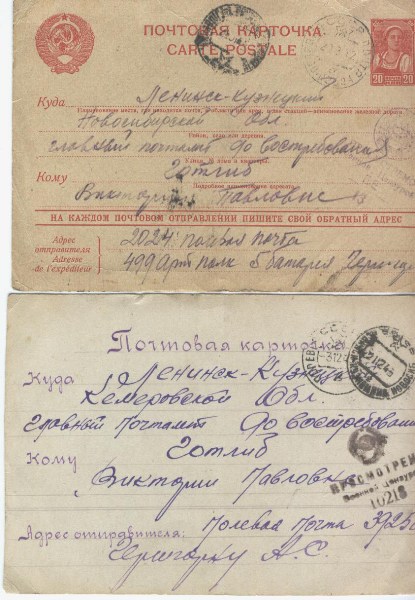 ПОЧТОВАЯ КАРТОЧКА
CARTE POSTALE
20 20
Куда Ленинск-Кузнецкий
Новосибирской обл.
Район, село или деревня.
главный почтамт до востребования
Готлиб
Кому
Подробное наименование адресата
Виктории Павловне
НА КАЖДОМ ПОЧТОВОМ ОТПРАВЛЕНИИ ПИШИТЕ СВОЙ ОБРАТНЫЙ АДРЕС
Адрес отправителя
Adresse de l'expéditeur
2024 полевая почта
499 Арт полк 6 батарея
Почтовая карточка
Куда Ленинск-Кузнец
Кемеровской Обл.
Главный Почтамт до востребования
Готлиб
Кому
Виктории Павловн
ПРОСМОТРЕН
Военной Цензур
10218
Адрес отправителя: Полевая Почта 3925
Чернорку А.С.